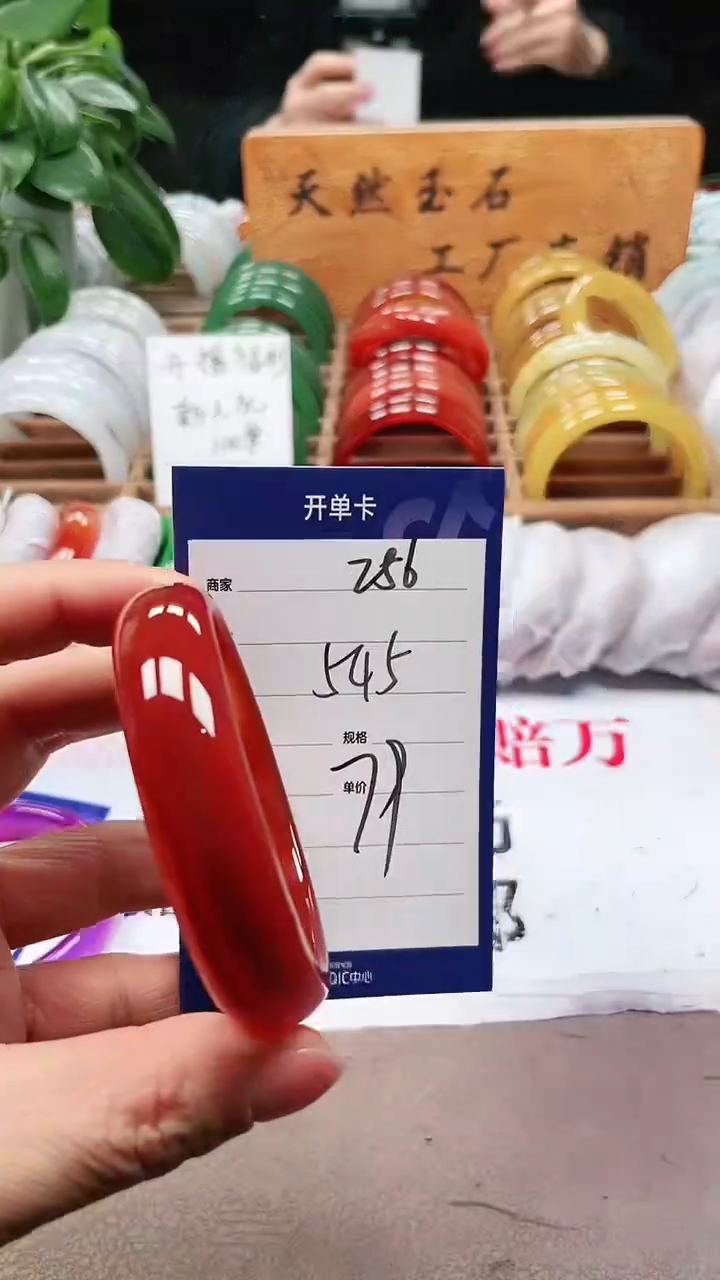 天然玉石
工厂直销
开播福利
新人礼
100单
开单卡
商家 256
545
规格
单价 79
QIC中心
赔万